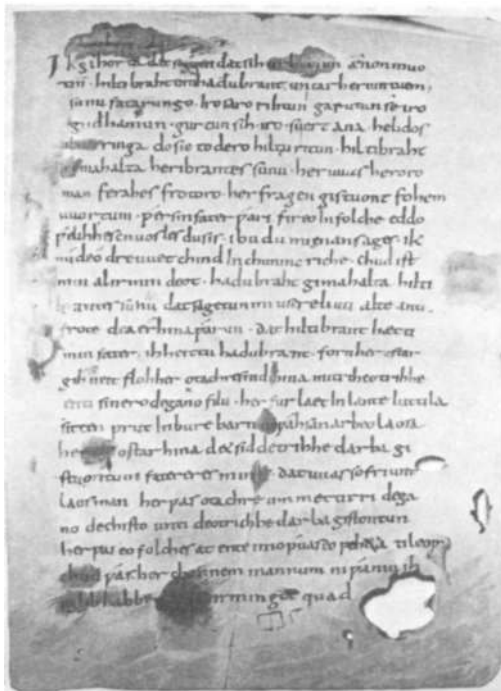 Ik gihorta đat seggen đat sih urhettun ænon muo
tin· hiltibraht enti hađubrant· untar heriun tuem·
sunu fatarungo· iro saro rihtun garutun se iro
guđhamun· gurtun sih· iro· suert ana· helidos
ubar ringa do sie to dero hiltu ritun· hiltibraht
gimahalta heribrantes sunu· her uuas heroro
man ferahes frotoro· her fragen gistuont fohem
uuortum· ƿer sin fater ƿari fireo In folche eddo
ƿelihhes cnuosles du sis· ibu du mi enan sages· ik
mi deo dre uuet chind In chunincriche· chud ist
min al irmindeot· hadubraht gimahalta hilti
brantes sunu dat sagetun mi usere liuti alte anti
frote dea erhina ƿarun· dat hiltibrant hætti
min fater· ih heittu hadubrant· forn her ostar
gihueit floh her otachres nid hina miti theotrihhe
enti sinero degano filu· her furlaet In lante luttila
sitten prut In bure barn unƿahsan arbeo laosa
heraet ostar hina det sid detrihhe darba gi
stuontum fatereres mines· dat uuas so friunt
laos man her ƿas otachre ummet tirri dega
no dechisto unti deotrichhe darba gistontun
her ƿas eo folches at ente imo ƿuas eo ƿeheta ti leop
chud ƿas her chonnem mannum ni ƿaniu ih
iu lib habbe irmingot quad